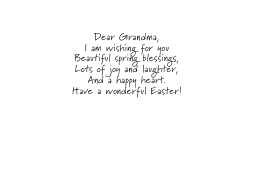 Dear Grandma,
I am wishing for you
Beautiful spring blessings,
Lots of joy and laughter,
And a happy heart.
Have a wonderful Easter!